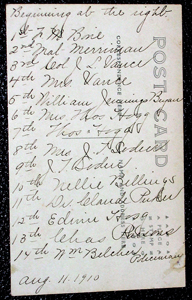 Beginning at the right-
1st A H Bone
2nd Nat Merriman
3rd Col J L Vance
4th Mrs Vance
5th William Jennings Bryan
6th Mrs Thos Hogg
7th Thos Hogg
8th Mrs J T
9th J T
10th Nellie
11th Dr Claude Parker
12th Edwin
13th Chas
14th Wm Belcher
Aug. 11. 1910
POST CARD
CORRESPONDENCE